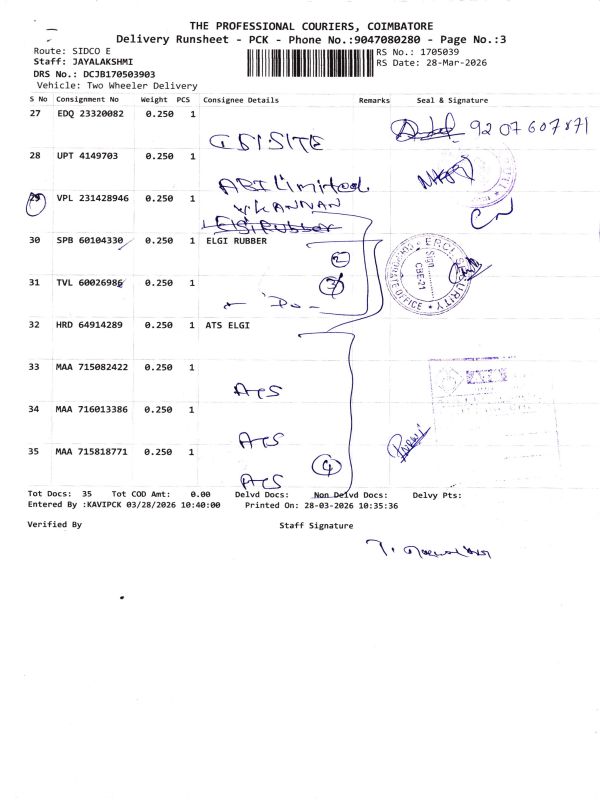 THE PROFESSIONAL COURIERS, COIMBATORE
Delivery Runsheet - PCK - Phone No.:9047080280 - Page No.:3
Route: SIDCO E
RS No.: 1705039
Staff: JAYALAKSHMI
RS Date: 28-Mar-2026
DRS No.: DCJB170503903
Vehicle: Two Wheeler Delivery
S No Consignment No Weight PCS Consignee Details Remarks Seal & Signature
27 EDQ 23320082 0.250 1
9207607871
28 UPT 4149703 0.250 1
ABI Limited
29 VPL 231428946 0.250 1
KANNAN
Elgi Rubber
30 SPB 60104330 0.250 1 ELGI RUBBER
2
31 TVL 60026986 0.250 1
3
- Do -
32 HRD 64914289 0.250 1 ATS ELGI
33 MAA 715082422 0.250 1
ATS
34 MAA 716013386 0.250 1
ATS
35 MAA 715818771 0.250 1
4
ATS
CORPORATE OFFICE
SECURITY
Sign
CBE-21
Tot Docs: 35 Tot COD Amt: 0.00 Delvd Docs: Non Delvd Docs: Delvy Pts:
Entered By :KAVIPCK 03/28/2026 10:40:00 Printed On: 28-03-2026 10:35:36
Verified By Staff Signature